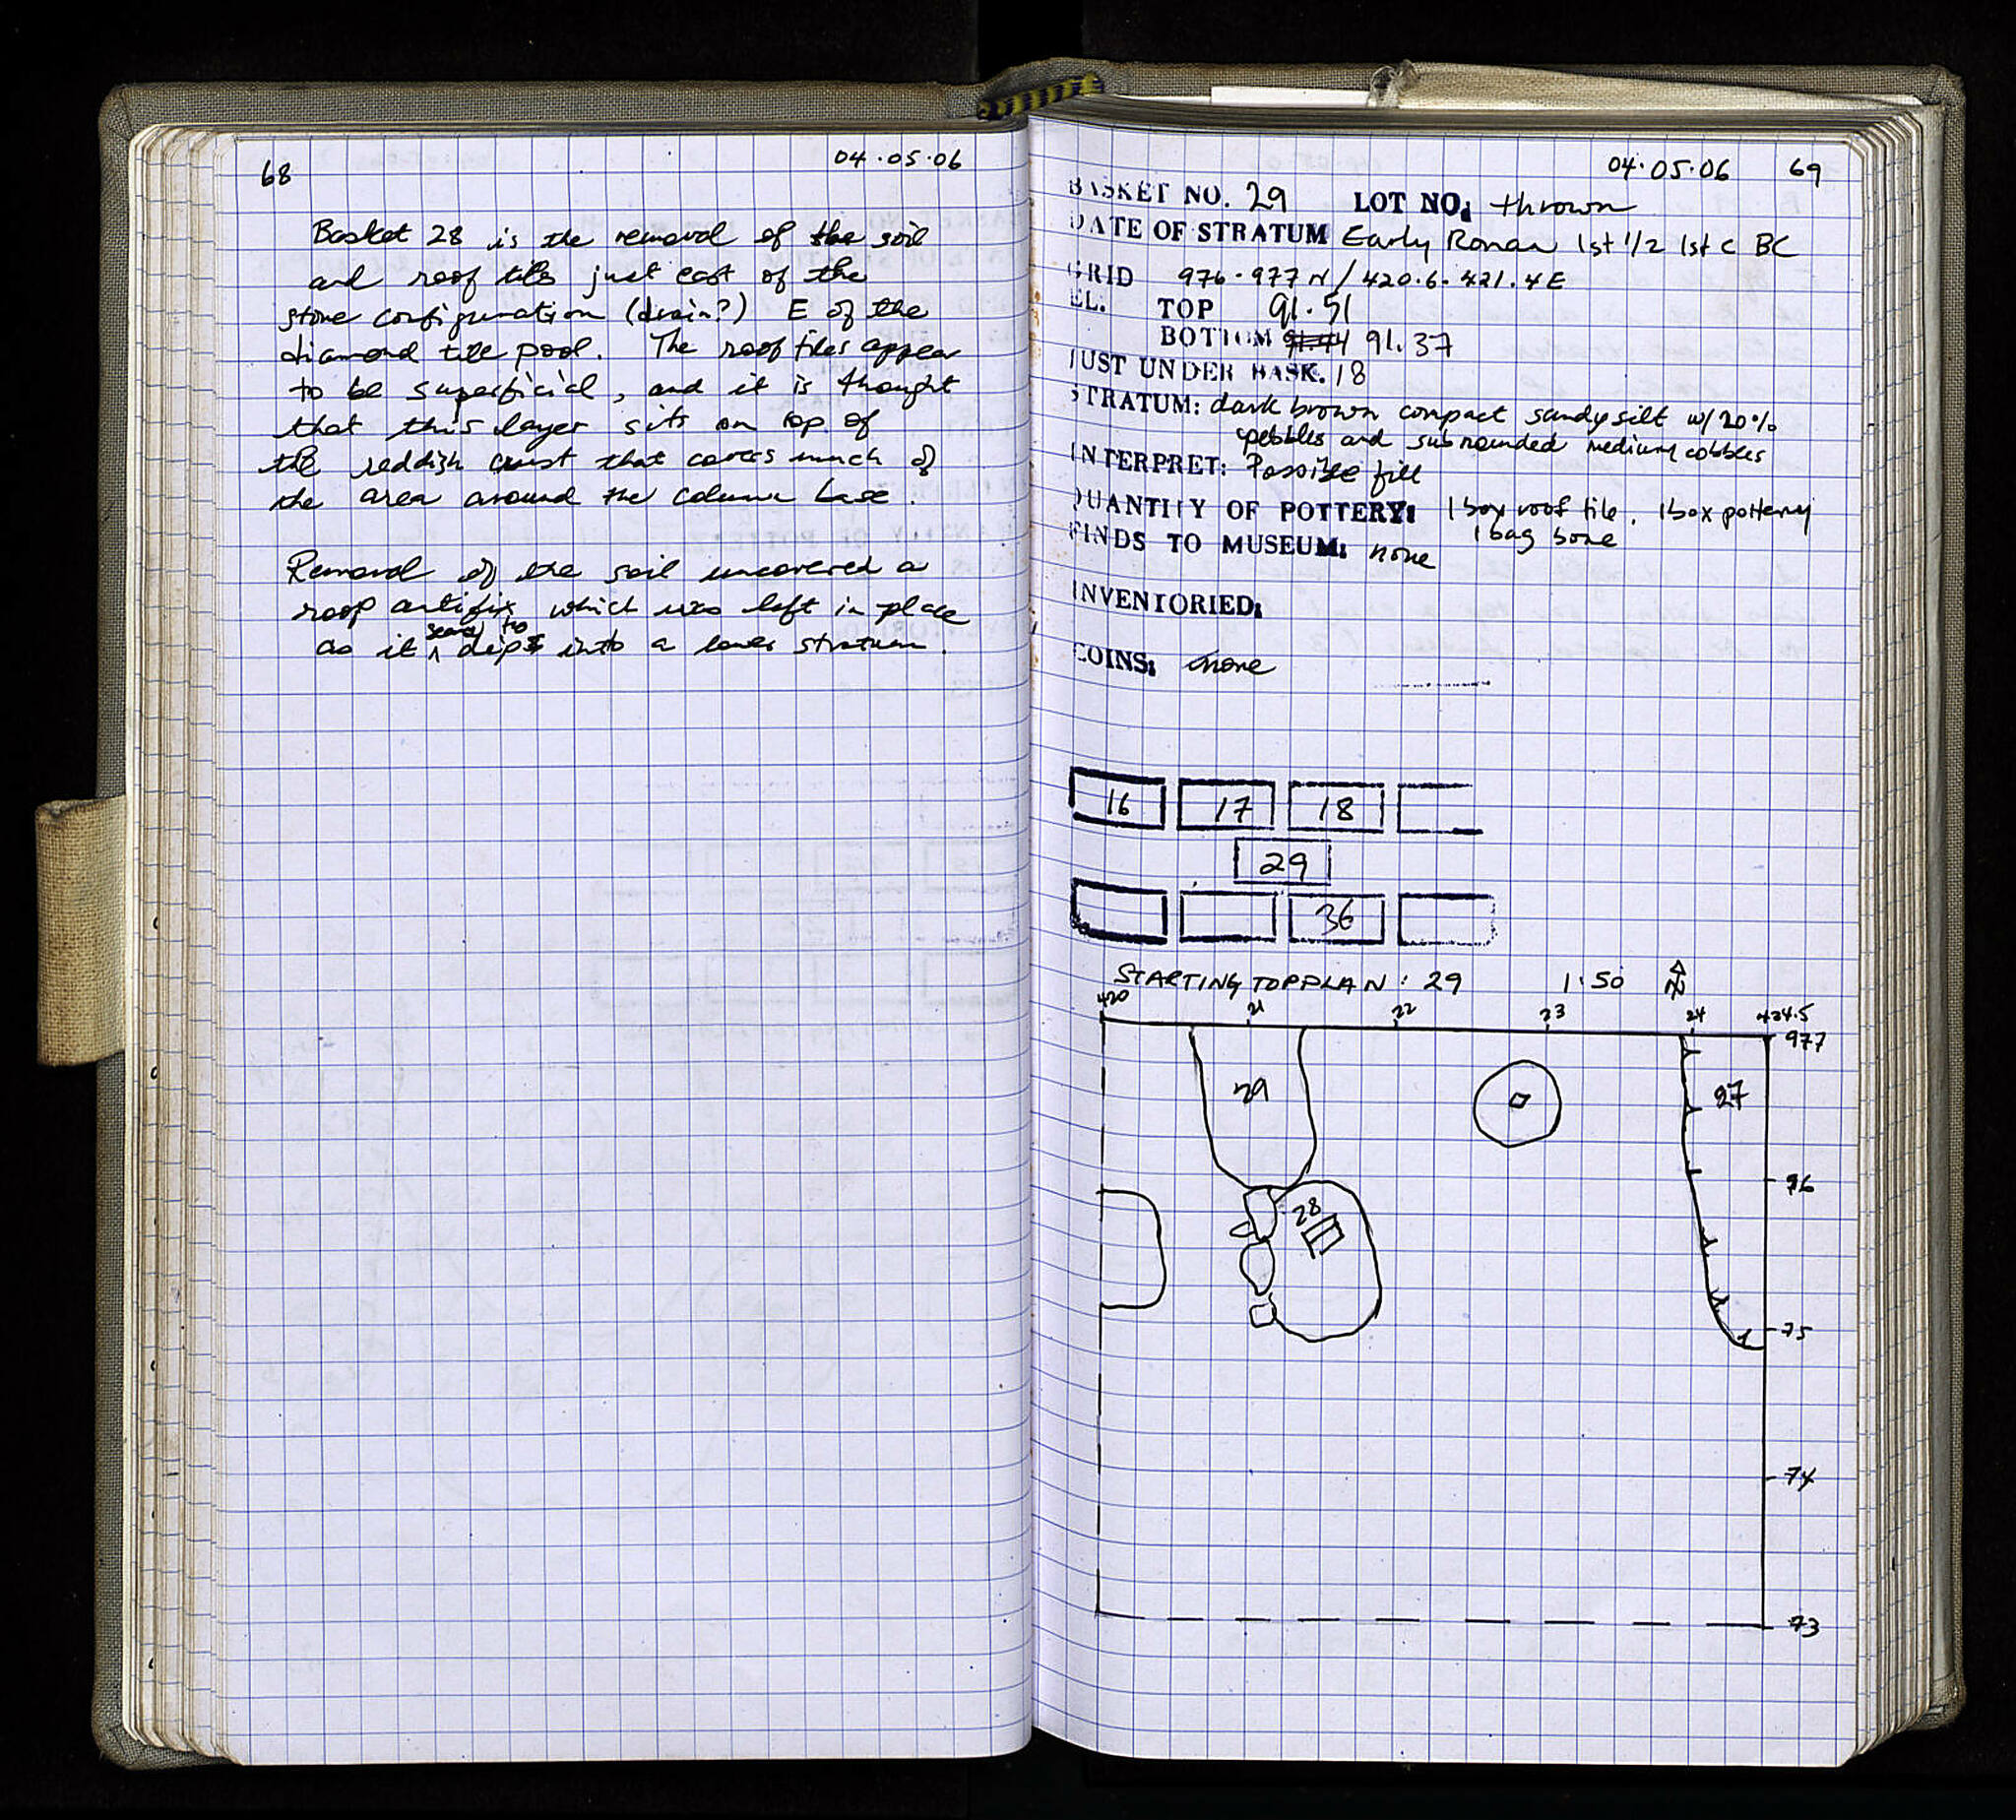 68
04.05.06
Basket 28 is the removal of the soil
and roof tiles just east of the
stone configuration (drain?) E of the
diamond tile pool. The roof tiles appear
to be superficial, and it is thought
that this layer sits on top of
the reddish crust that covers much of
the area around the column base.
Removal of the soil uncovered a
roof antifix which was left in place
as it seems to dip into a lower stratum.
04.05.06 69
BASKET NO. 29 LOT NO: thrown
DATE OF STRATUM Early Roman 1st 1/2 1st c BC
GRID 976-977 N / 420.6-421.4 E
EL. TOP 91.51
BOTTOM 91.44 91.37
JUST UNDER BASK. 18
STRATUM: dark brown compact sandy silt w/ 20%
pebbles and subrounded medium cobbles
INTERPRET: Possible fill
QUANTITY OF POTTERY: 1 box roof tile, 1 box pottery
1 bag bone
FINDS TO MUSEUM: none
INVENTORIED:
COINS: none
16 17 18
29
36
STARTING TOPPLAN: 29 1:50 N
420 21 22 23 24 424.5
977
29
27
96
28
75
74
73